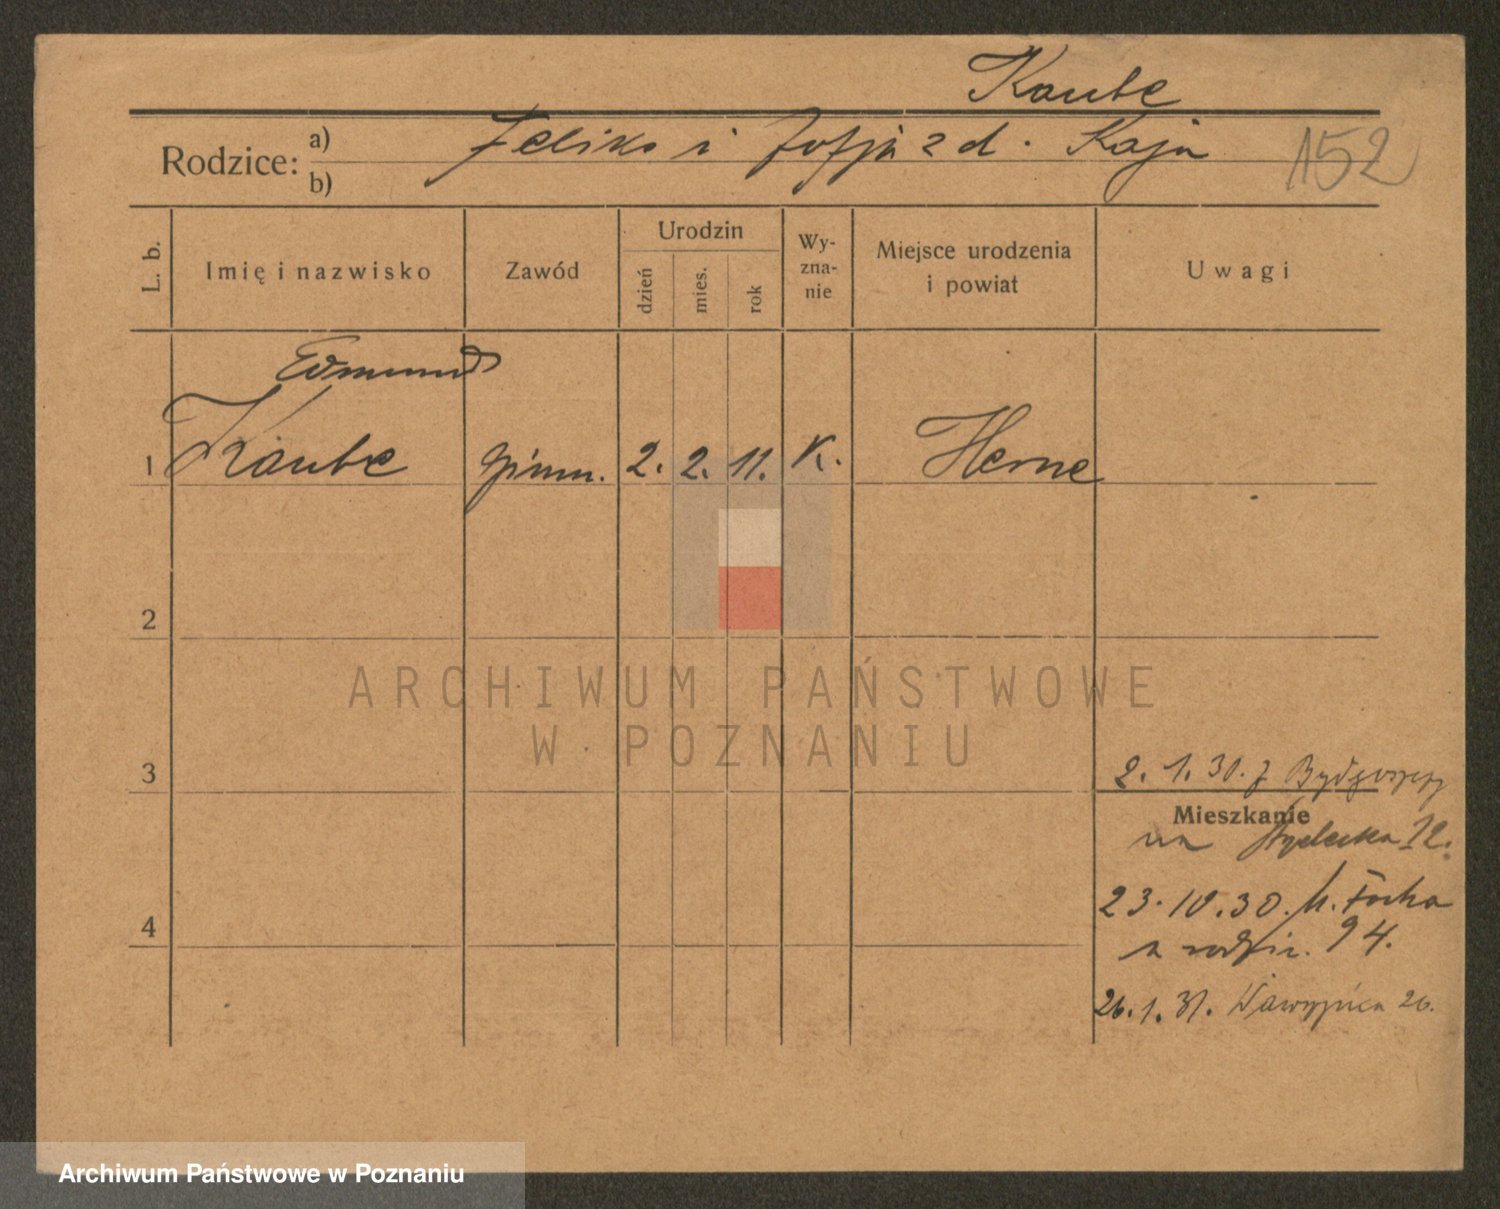 Kaube
Rodzice: a) Feliks i Zofja z d. Kaja
b)
152
L. b.
Imię i nazwisko
Zawód
Urodzin
dzień
mies.
rok
Wy-
zna-
nie
Miejsce urodzenia
i powiat
Uwagi
Edmund
1 Kaube gimn. 2. 2. 11. K. Herne
2
ARCHIWUM PAŃSTWOWE
W POZNANIU
3
2. 1. 30. z Bydgoszczy
Mieszkanie
na 12.
23.10.30. M. Focha
u rodzic. 94.
4
26.1.31. Wawrzyńca 26.
Archiwum Państwowe w Poznaniu